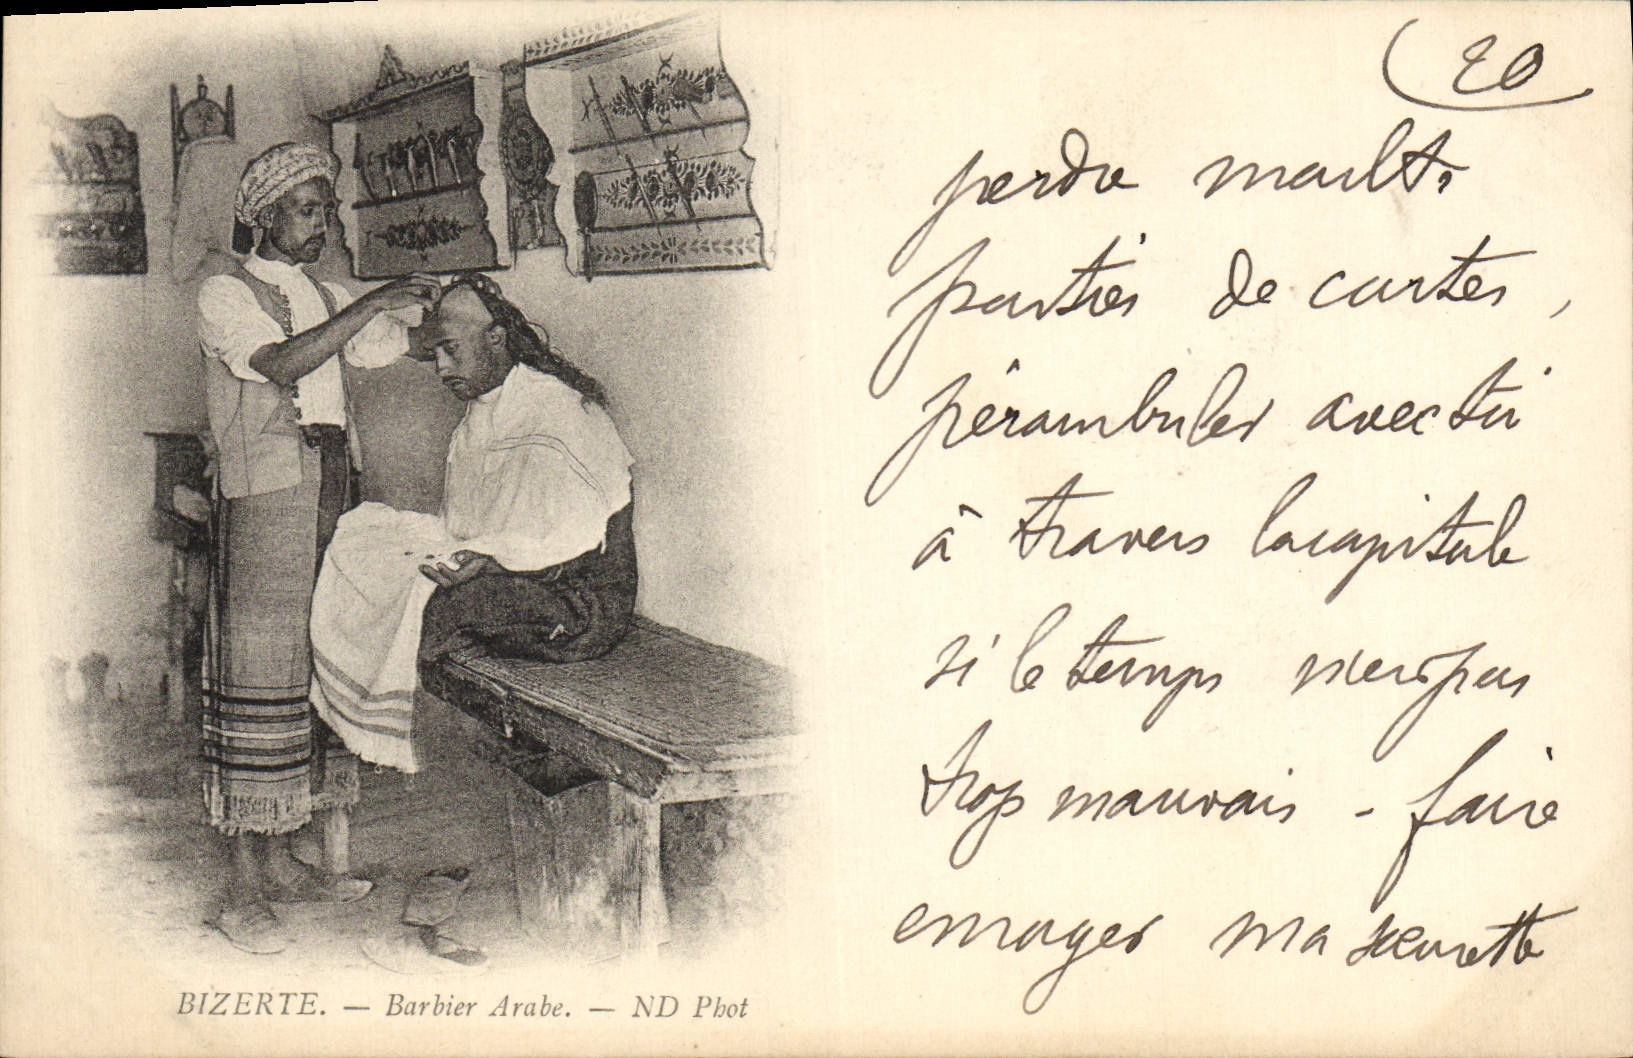 20
perdre moult
parties de cartes,
pérambuler avec toi
à travers la capitale
si le temps n'est pas
trop mauvais - faire
enrager ma sœurette
BIZERTE. — Barbier Arabe. — ND Phot